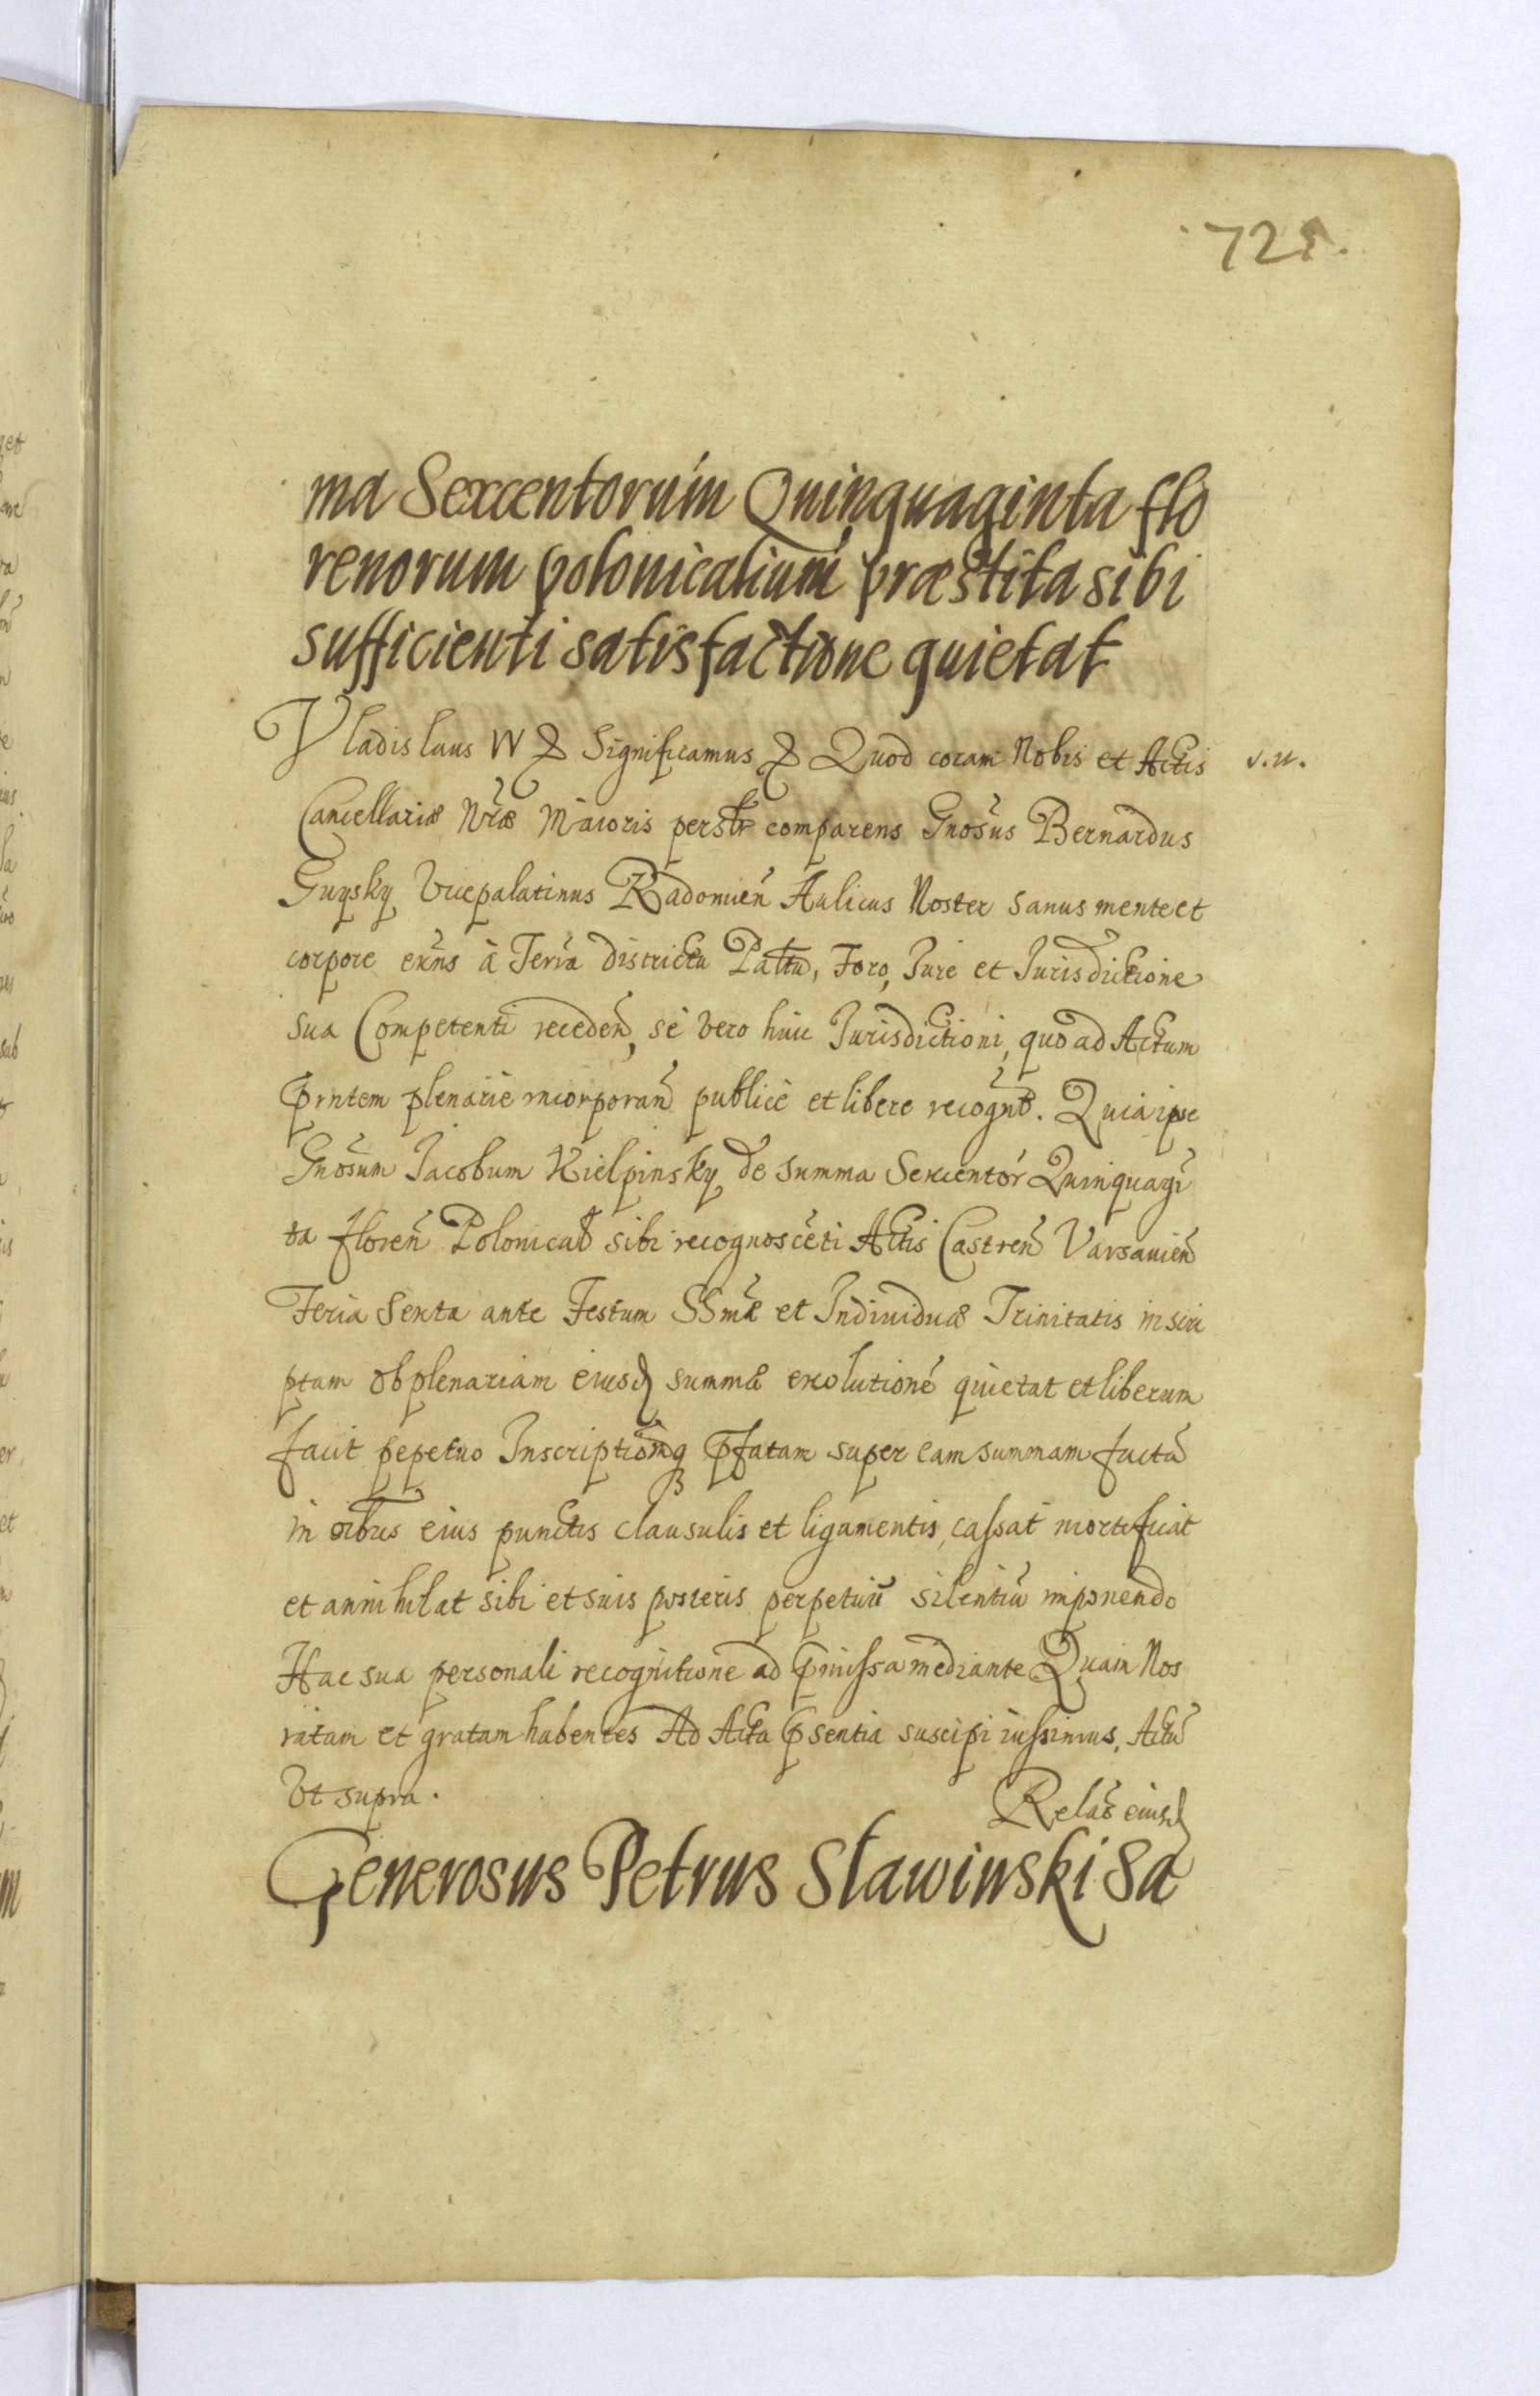 721.
ma Sexcentorum Quinquaginta flo
renorum polonicalium præstita sibi
sufficienti satisfactione quietat
Vladislaus IV Significamus Quod coram Nobis et Actis
s.n.
Cancellariæ Nr̃æ Maioris persltr comparens Gnosus Bernardus
Guysky Vicepalatinus Radomien̄ Aulicus Noster sanus mente et
corpore exn̄s à Terra districtu Palltu, Foro, Jure et Jurisdictione
sua Competenti receden̄, se vero huic Jurisdictioni, quo ad Actum
prntem plenarie incorporan̄ publicè et libere recognt. Quia ipse
Gnosum Jacobum Kielpinsky de summa Sexcentor Quinquagī
ta floren̄ Polonical sibi recognoscēti Actis Castren̄ Varsavien̄
Feria Sexta ante Festum SSmæ et Individuæ Trinitatis inscri
ptam ob plenariam eiusd summæ exolutionē quietat et liberum
facit ppetuo Inscriptionēq pfatam super eam summam factā
in oībus eius punctis clausulis et ligamentis, cassat mortificat
et annihilat sibi et suis posteris perpetuū silentiū imponendo
Hac sua personali recognitione ad pmissa mediante Quam Nos
ratam et gratam habentes Ad Acta psentia suscipi iussimus, Actū
Vt supra.
Relāo eiusd
Generosus Petrus Slawinski Sa